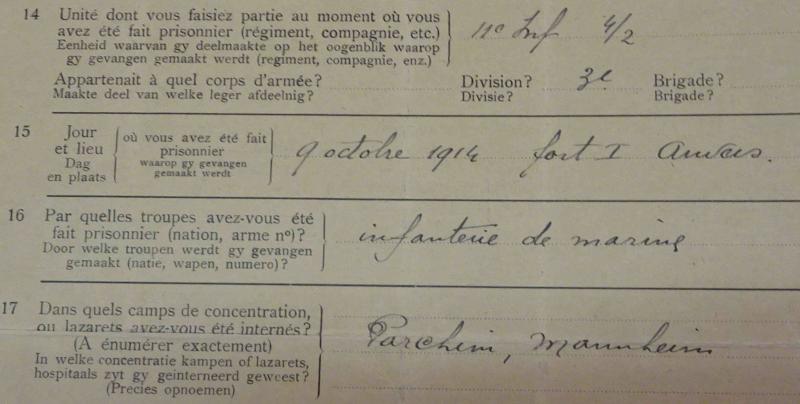 14 Unité dont vous faisiez partie au moment où vous
avez été fait prisonnier (régiment, compagnie, etc.)
Eenheid waarvan gy deelmaakte op het oogenblik waarop
gy gevangen gemaakt werdt (regiment, compagnie, enz.)
11e Inf 4/2
Appartenait à quel corps d'armée? Division? 3e Brigade?
Maakte deel van welke leger afdeelnig? Divisie? Brigade?
15 Jour
et lieu
Dag
en plaats
où vous avez été fait
prisonnier
waarop gy gevangen
gemaakt werdt
9 octobre 1914 fort I Anvers.
16 Par quelles troupes avez-vous été
fait prisonnier (nation, arme no)?
Door welke troupen werdt gy gevangen
gemaakt (natie, wapen, numero)?
infanterie de marine
17 Dans quels camps de concentration,
ou lazarets avez-vous été internés?
(A énumérer exactement)
In welke concentratie kampen of lazarets,
hospitaals zyt gy geinterneerd geweest?
(Precies opnoemen)
Parchim, Mannheim